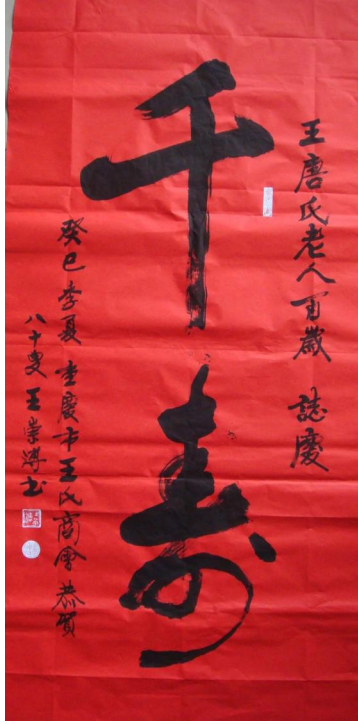 王唐氏老人百歲 誌慶
千寿
癸巳季夏 重慶市王氏商會 恭賀
八十叟 王崇 书